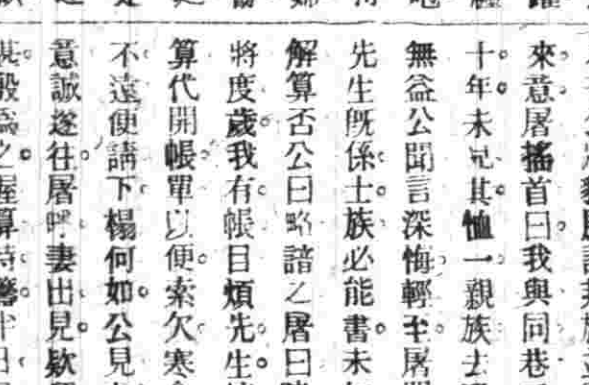 來意屠搖首曰我與同巷
十年未見其恤一親族去
無益公聞言深悔輕羊屠
先生既係士族必能書未
解算否公曰略諳之屠曰
將度歲我有帳目煩先生
算代開帳單以便索欠寒
不遠便請下榻何如公見
意誠遂往屠呼妻出見欵